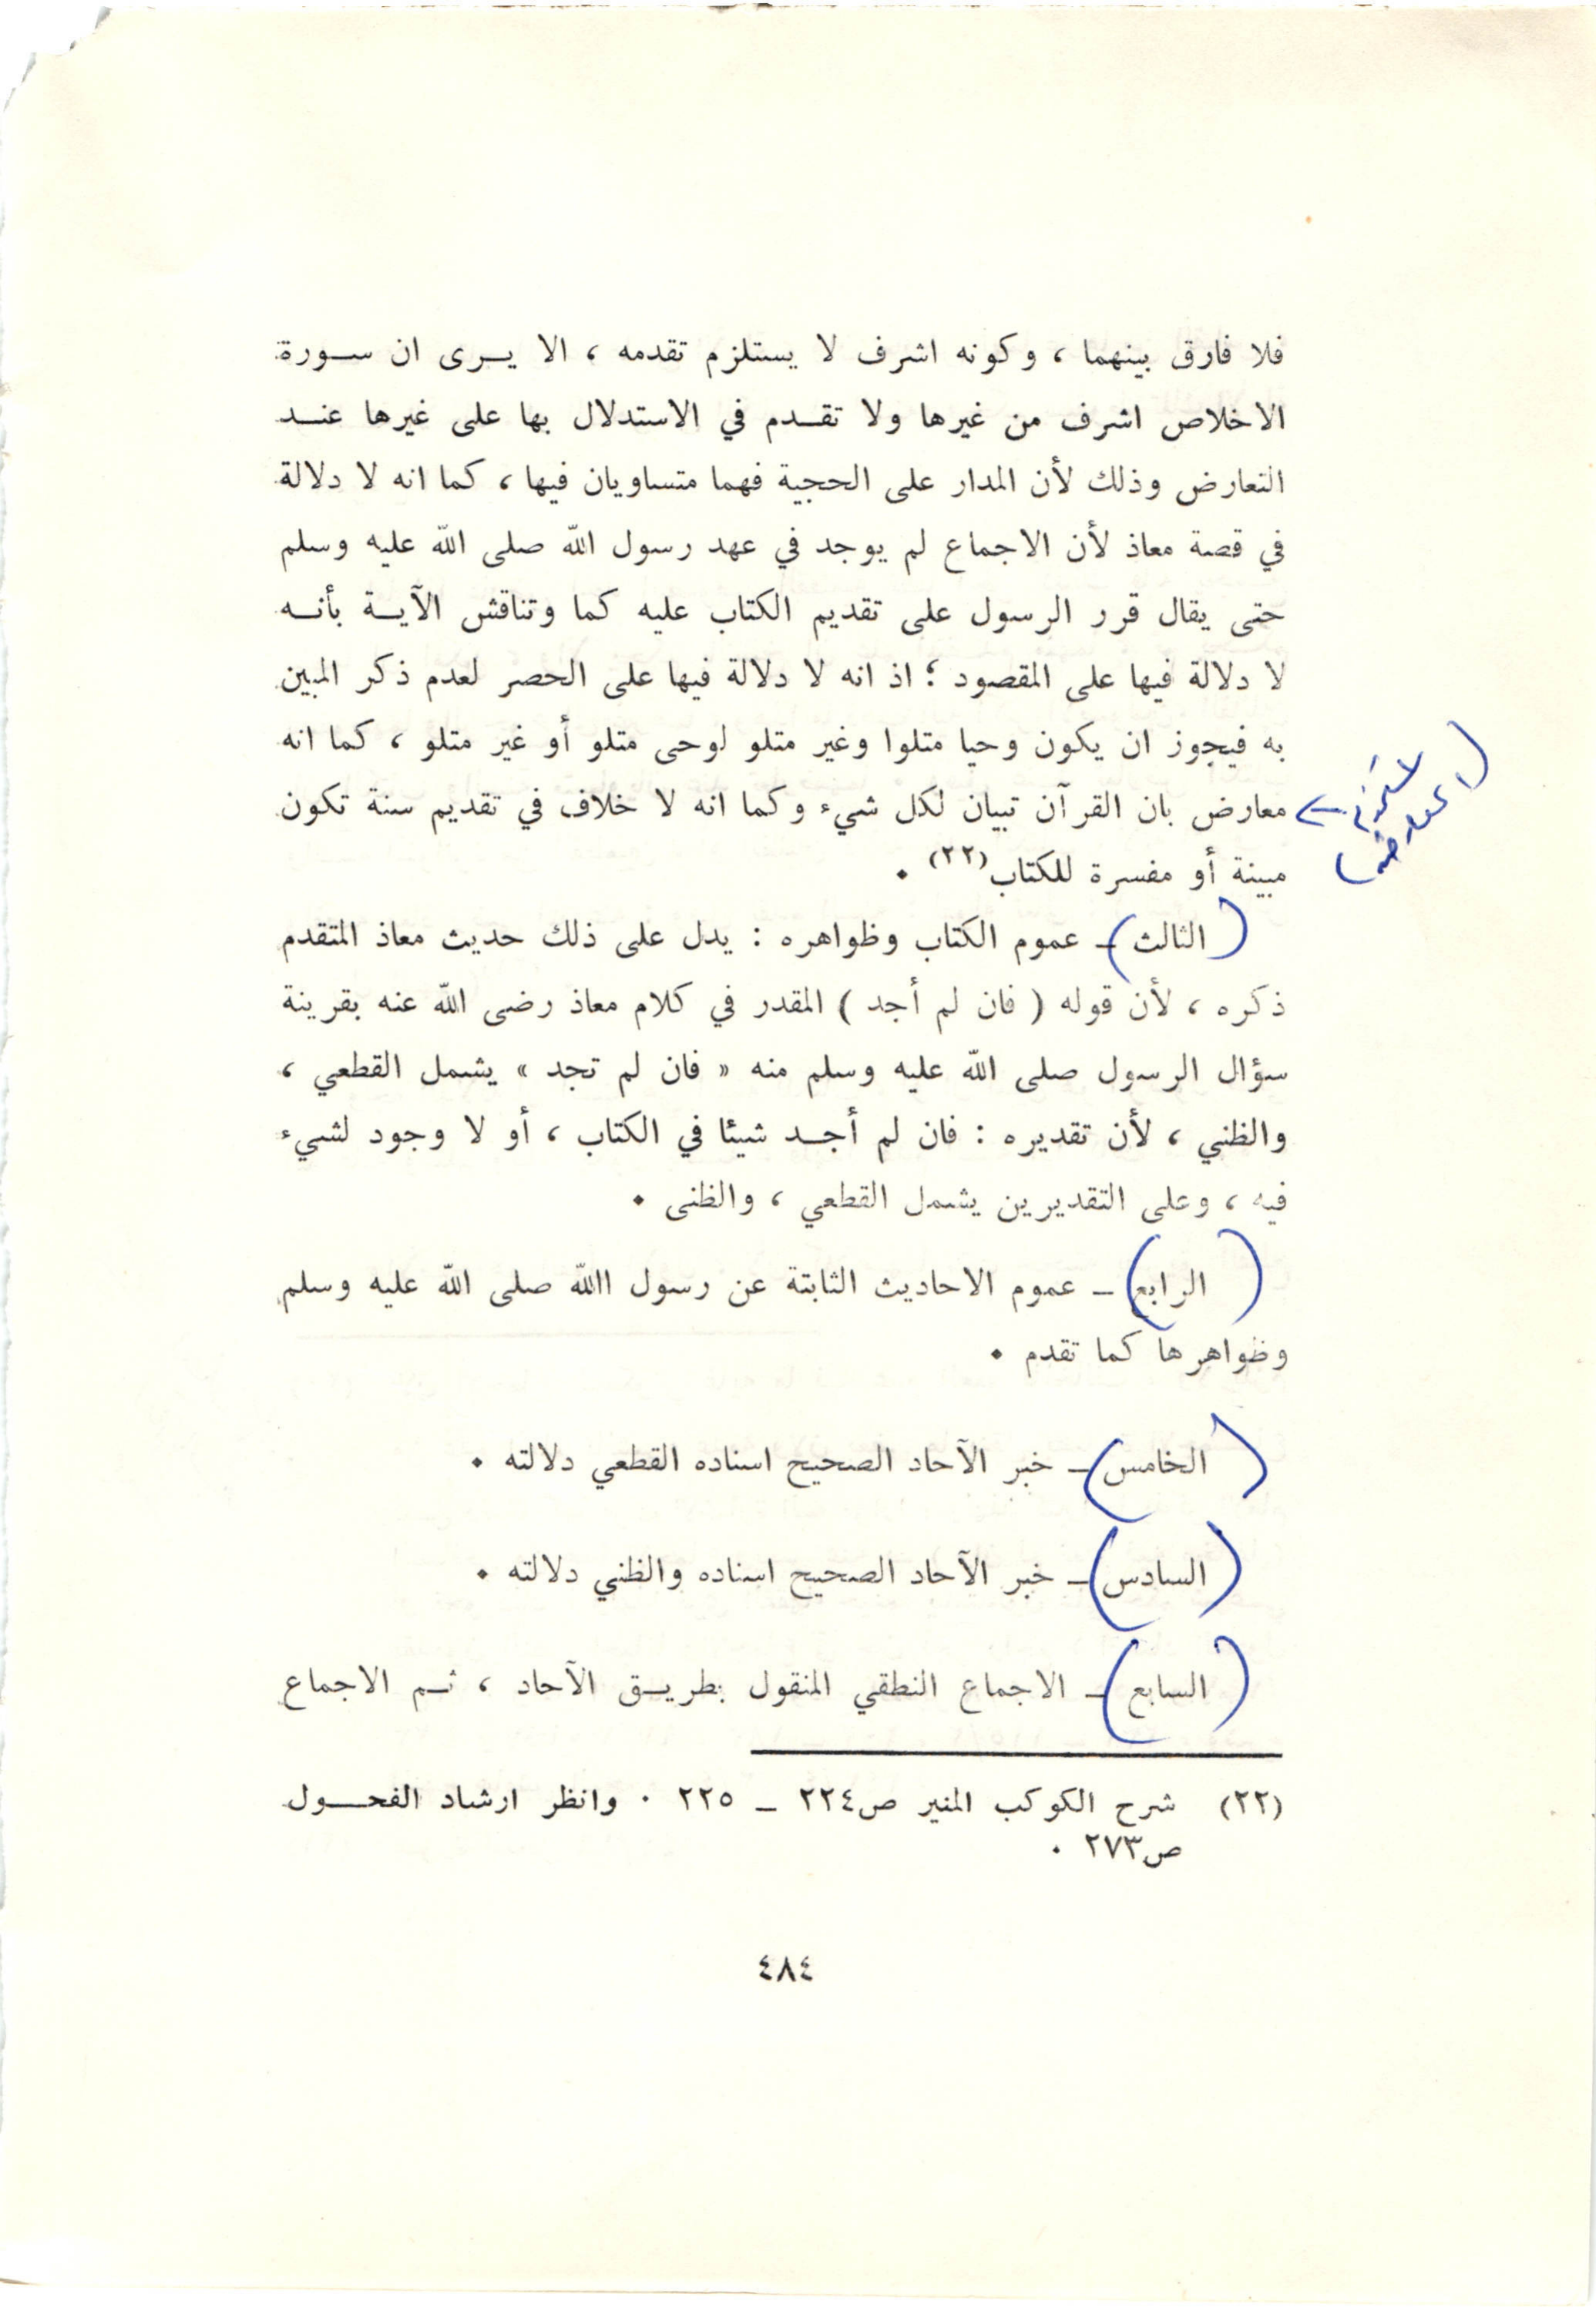 فلا فارق بينهما ، وكونه اشرف لا يستلزم تقدمه ، الا يــرى ان ســورة
الاخلاص اشرف من غيرها ولا تقــدم في الاستدلال بها على غيرها عنــد
التعارض وذلك لأن المدار على الحجية فهما متساويان فيها ، كما انه لا دلالة
في قصة معاذ لأن الاجماع لم يوجد في عهد رسول الله صلى الله عليه وسلم
حتى يقال قرر الرسول على تقديم الكتاب عليه كما وتناقش الآيــة بأنــه
لا دلالة فيها على المقصود ؛ اذ انه لا دلالة فيها على الحصر لعدم ذكر المبين
به فيجوز ان يكون وحيا متلوا وغير متلو لوحى متلو أو غير متلو ، كما انه
معارض بان القرآن تبيان لكل شيء وكما انه لا خلاف في تقديم سنة تكون
مبينة أو مفسرة للكتاب(٢٢) .
(الثالث) ــ عموم الكتاب وظواهره : يدل على ذلك حديث معاذ المتقدم
ذكره ، لأن قوله ( فان لم أجد ) المقدر في كلام معاذ رضى الله عنه بقرينة
سؤال الرسول صلى الله عليه وسلم منه « فان لم تجد » يشمل القطعي ،
والظني ، لأن تقديره : فان لم أجــد شيئا في الكتاب ، أو لا وجود لشيء
فيه ، وعلى التقديرين يشمل القطعي ، والظنى .
(الرابع) ــ عموم الاحاديث الثابتة عن رسول االله صلى الله عليه وسلم
وظواهرها كما تقدم .
(الخامس) ــ خبر الآحاد الصحيح اسناده القطعي دلالته .
(السادس) ــ خبر الآحاد الصحيح اسناده والظني دلالته .
(السابع) ــ الاجماع النطقي المنقول بطريــق الآحاد ، ثــم الاجماع
(٢٢) شرح الكوكب المنير ص٢٢٤ ــ ٢٢٥ . وانظر ارشاد الفحــول
ص٢٧٣ .
٤٨٤